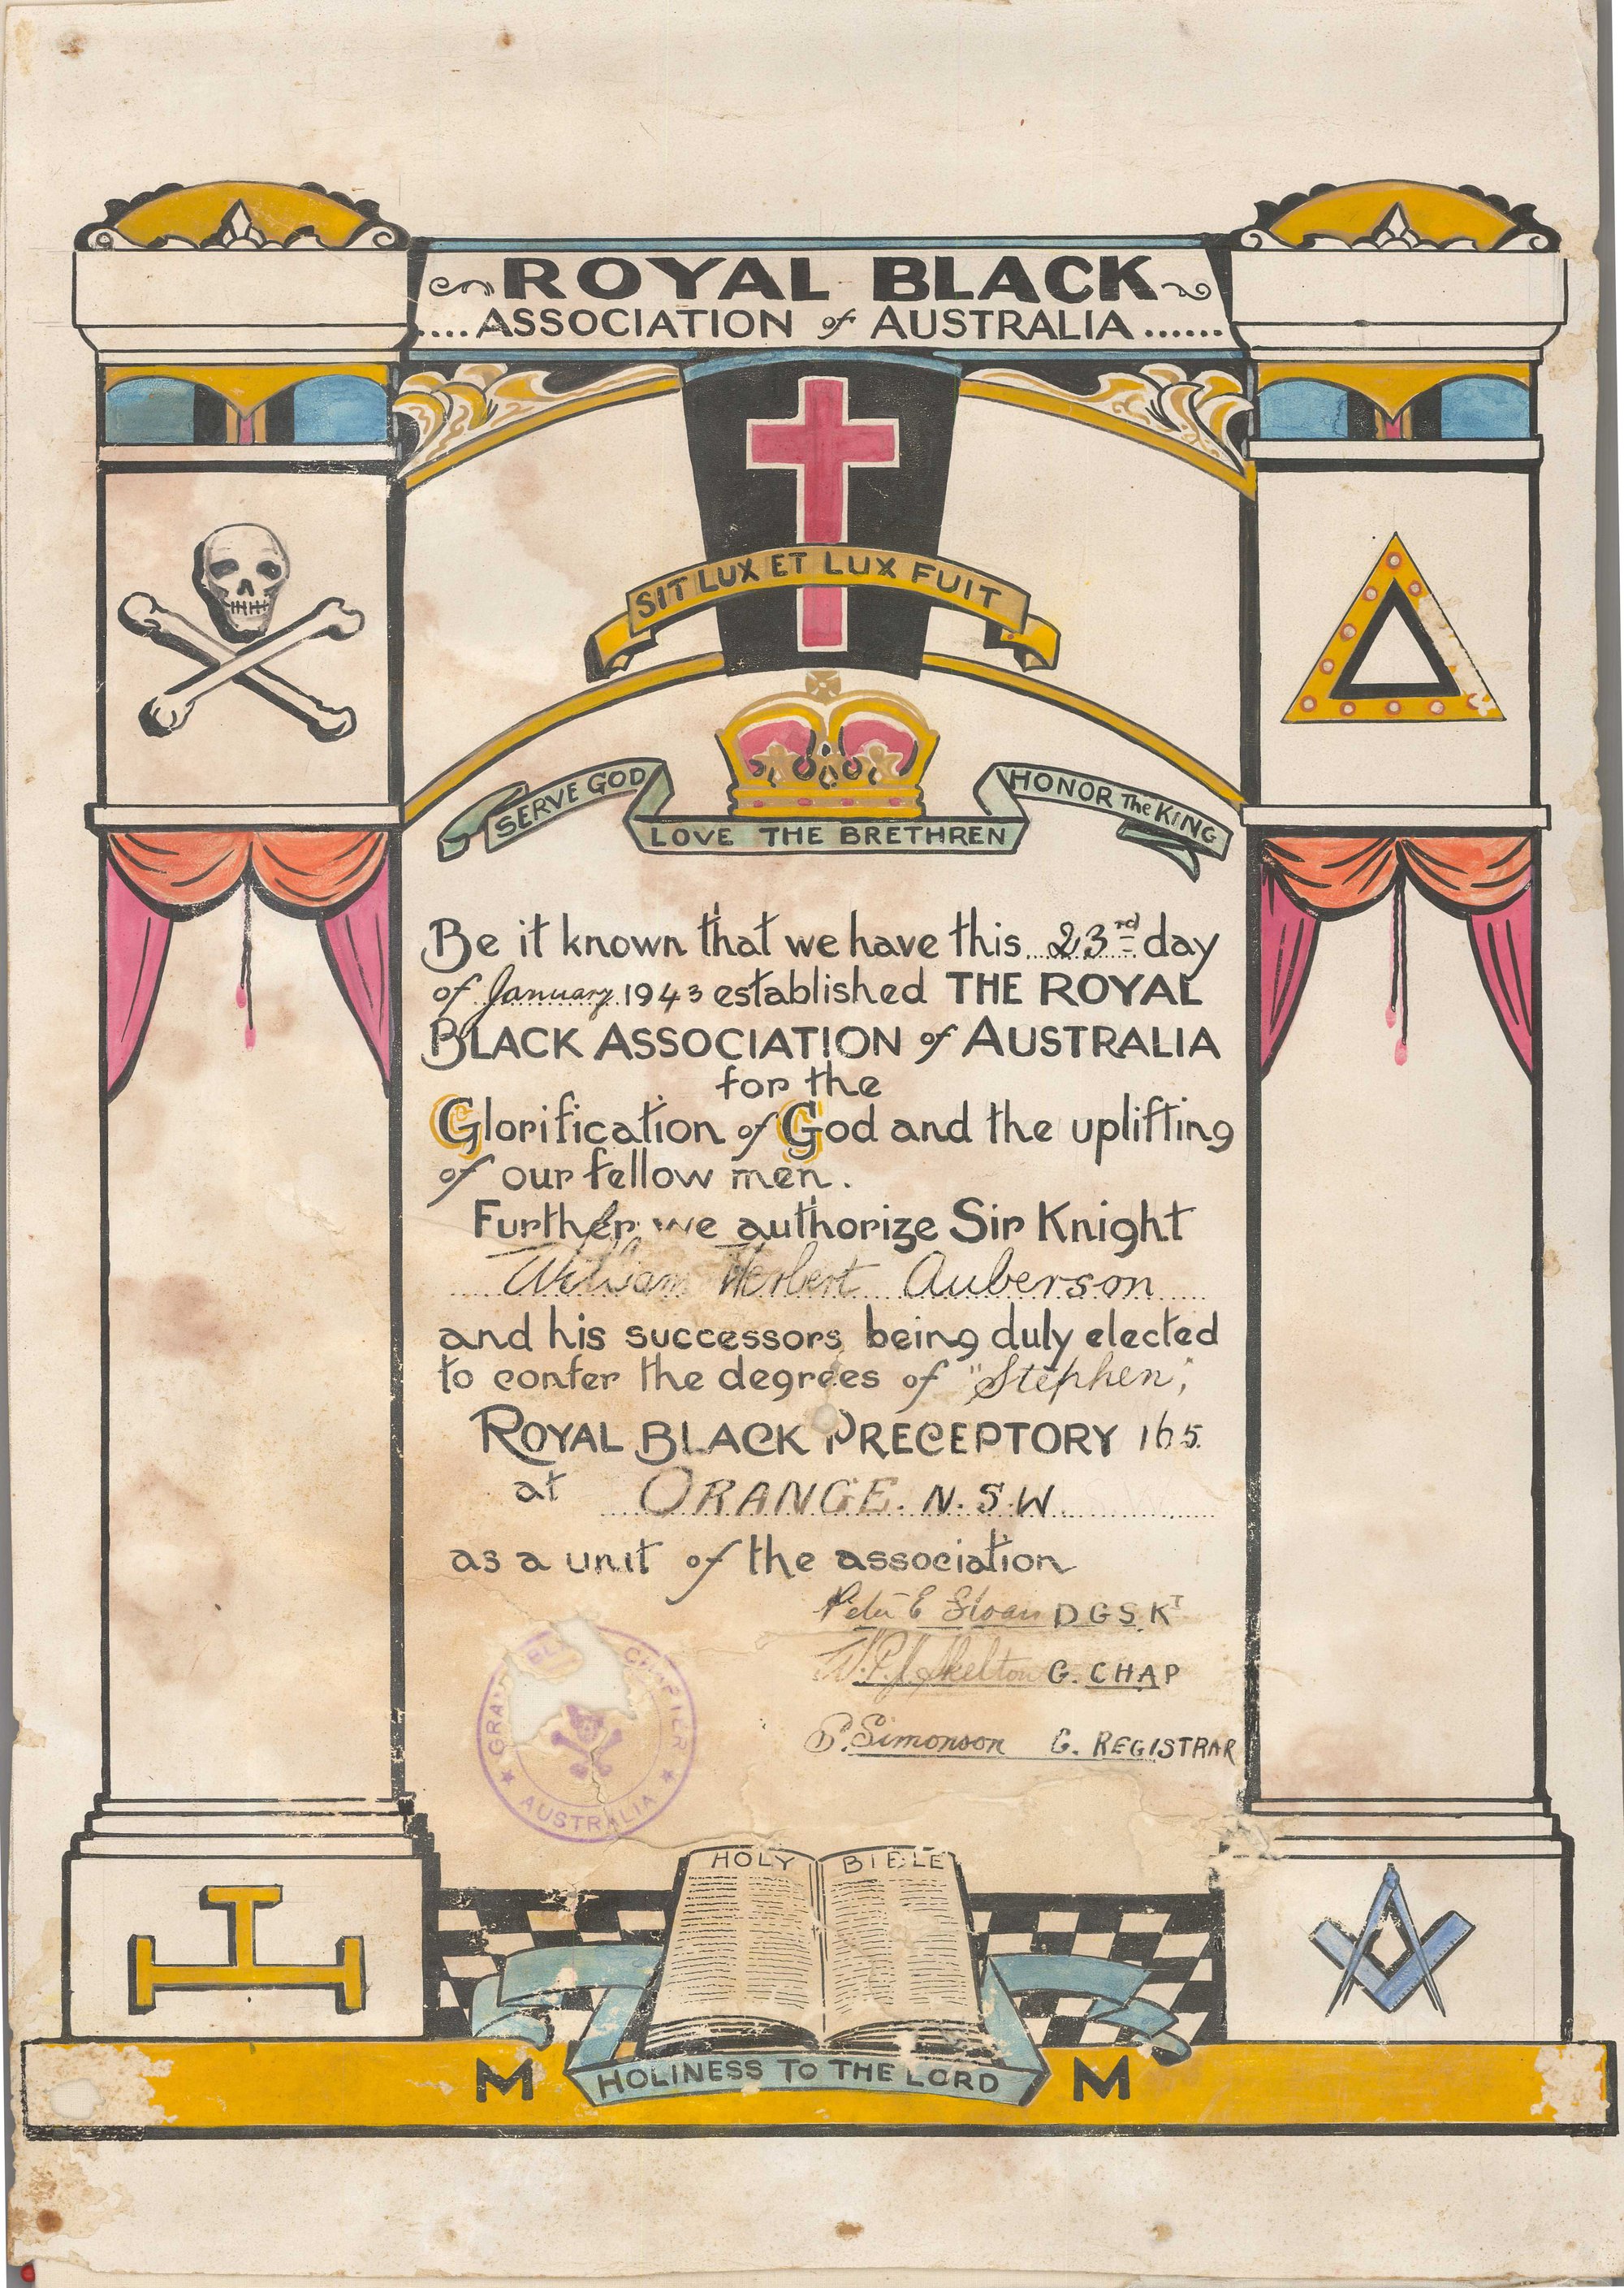 ROYAL BLACK
.... ASSOCIATION of AUSTRALIA ......
SIT LUX ET LUX FUIT
SERVE GOD
LOVE THE BRETHREN
HONOR The KING
Be it known that we have this 23rd day
of January 1943 established THE ROYAL
BLACK ASSOCIATION of AUSTRALIA
for the
Glorification of God and the uplifting
of our fellow men.
Further we authorize Sir Knight
William Herbert Auberson
and his successors being duly elected
to confer the degrees of "Stephen,"
ROYAL BLACK PRECEPTORY 165
at ORANGE. N.S.W.
as a unit of the association
Peter E Sloan D G S. KT
W.P.J. Skelton G. CHAP
P. Simonson G. REGISTRAR
GRAND BLACK
AUSTRALIA
HOLY BIBLE
M HOLINESS TO THE LORD M